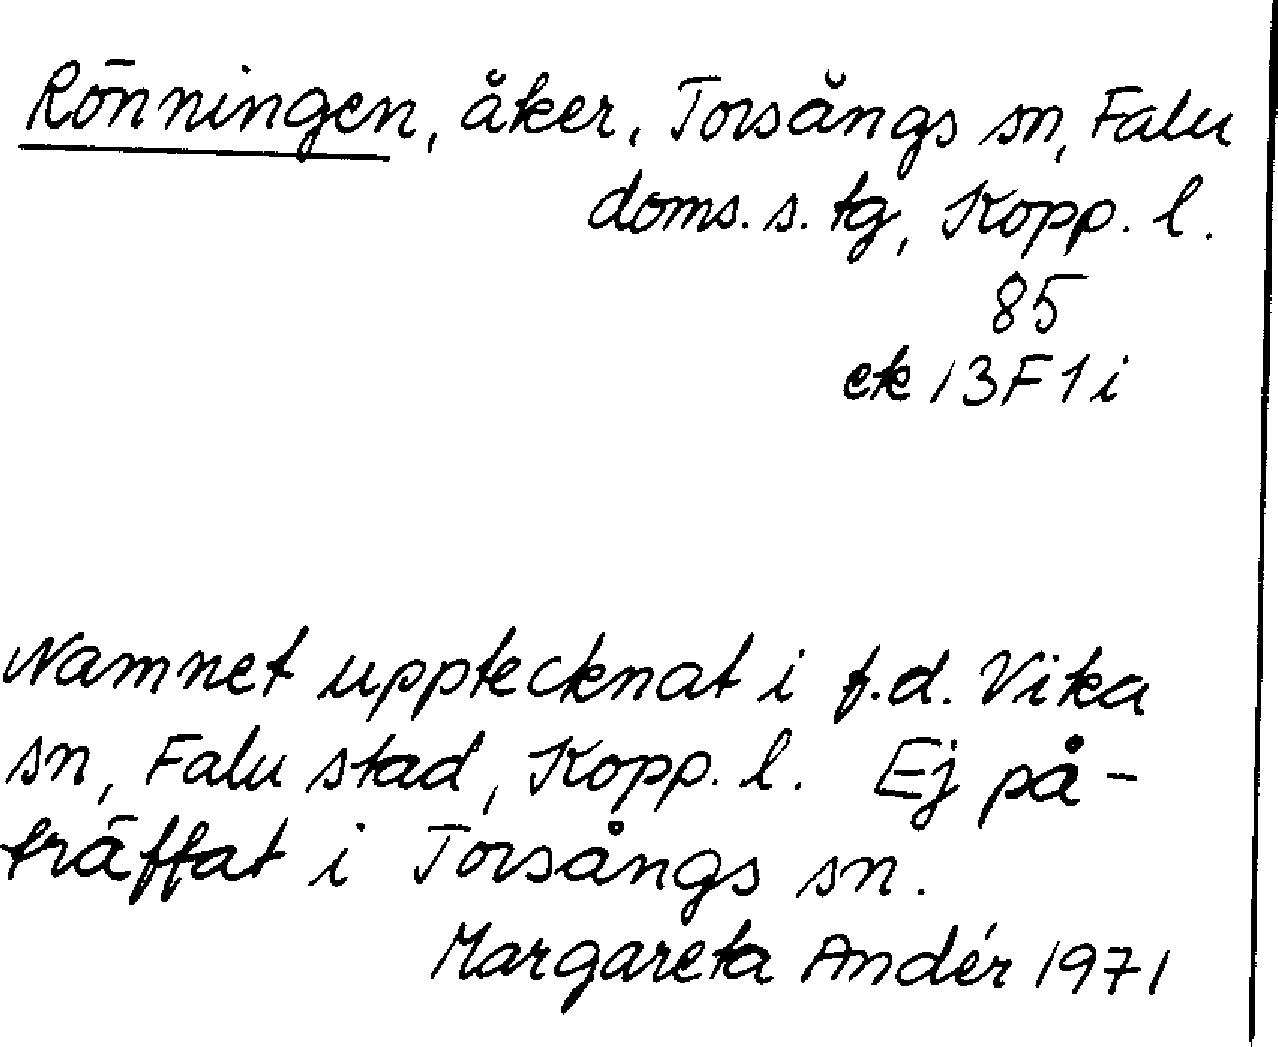 Rönningen, åker, Torsångs sn, Falu
doms. s. tg, Kopp. l.
85
ek 13F1i
Namnet upptecknat i f.d. Vika
sn, Falu stad, Kopp. l. Ej på-
träffat i Torsångs sn.
Margareta Andér 1971